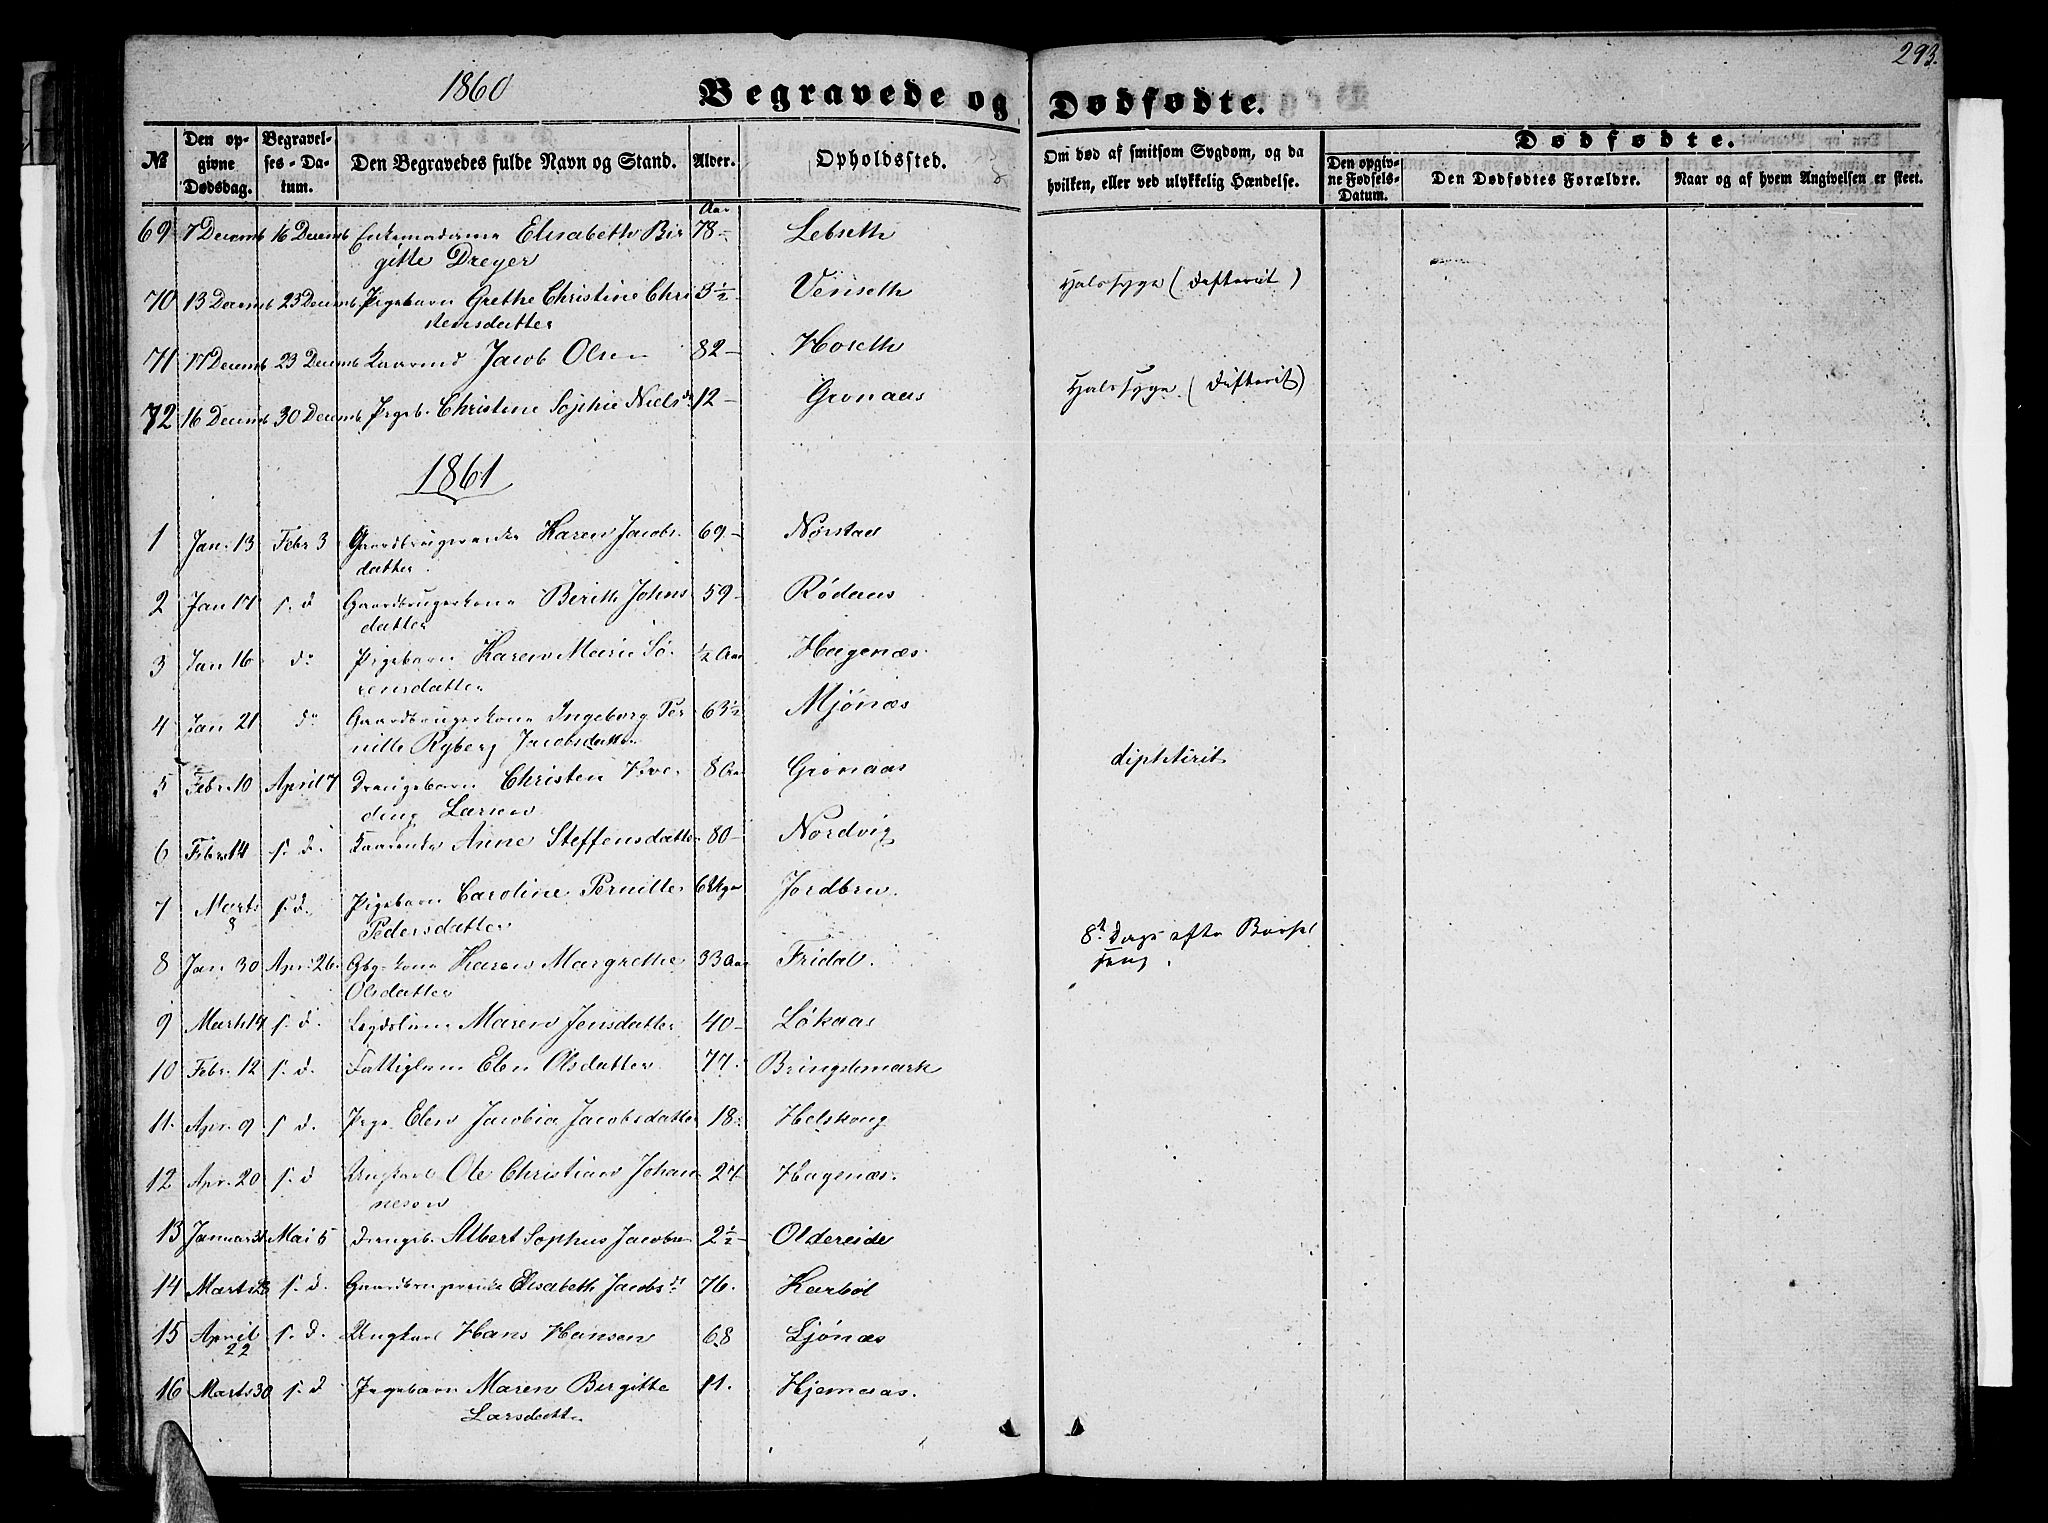 293.
1860
Begravede og Dødfødte.
№
Den opgivne Dødsdag.
Begravelses-Datum.
Den Begravedes fulde Navn og Stand.
Alder.
Opholdssted.
Om død af smitsom Sygdom, og da hvilken, eller ved ulykkelig Hændelse.
Dødfødte.
Den opgivne Fødsels-Datum.
Den Dødfødtes Forældre.
Naar og af hvem Angivelsen er skeet.
Aar
69 7 Decemb 16 Decemb Enkemadame Elisabeth Bir 78 - Lebseth
gitte Dreyer
70 13 Decemb 23 Decemb Pigebarn Grethe Christine Chri 3½ Venseth Halssyge (Difterit)
stensdatter
71 17 Decemb 23 Decemb Kaarmd Jacob Olsen 82 - Hoseth
72 16 Decemb 30 Decemb Pigeb. Christine Sophie Nielsdr 12 - Grønaas Halssyge (Difterit)
1861
1 Jan. 13 Febr 3 Gaardbrugerenke Karen Jacobs 69 - Nørstad
datter.
2 Jan 17 s. d Gaardbrugerkone Berith Johns 59 - Rødaas
datter
3 Jan 16 do Pigebarn Karen Marie Sø ½ Aar Hagenæs
rensdatter
4 Jan 21 do Gaardbrugerkone Ingeborg Per 63½ Mjønæs
nille Ryberg Jacobsdatter
5 Febr. 10 April 7 Drengebarn Christen Hve 8 Aar Grønaas diphterit
ding Larsen
6 Febr 14 s. d. Kaarenke Anne Steffensdatter 80 - Nordvig
7 Marts 8 s. d. Pigebarn Caroline Pernille 6 Uger Jordbru.
Pedersdatter
8 Jan 30 Apr. 26. Gbg.kone Karen Margrethe 33 Aar Fridal. 8te Dage efter Barsel
Olsdatter seng.
9 Marts 14 s. d. Lægdslem Maren Jensdatter 40 - Løkaas
10 Febr. 12 s. d. Fattiglem Elen Olsdatter 77. Bringslimark
11. Apr. 9 s d. Pige Elen Jacobia Jacobsdatter 18 Helskong
12 Apr. 20 s. d Ungkarl Ole Christian Johan 27 Hagenæs.
nesen
13 Januar 31 Mai 5 Drengeb. Albert Sophus Jacobsen 2½ Oldereide
14 Marts 23 s. d. Gaardbrugerenke Elisabeth Jacobsdr 76. Karbøl
15 April 22 s. d. Ungkarl Hans Hansen 68 Ljønæs
16 Marts 30 s. d Pigebarn Maren Birgitte 11. Hjemaas.
Larsdatter